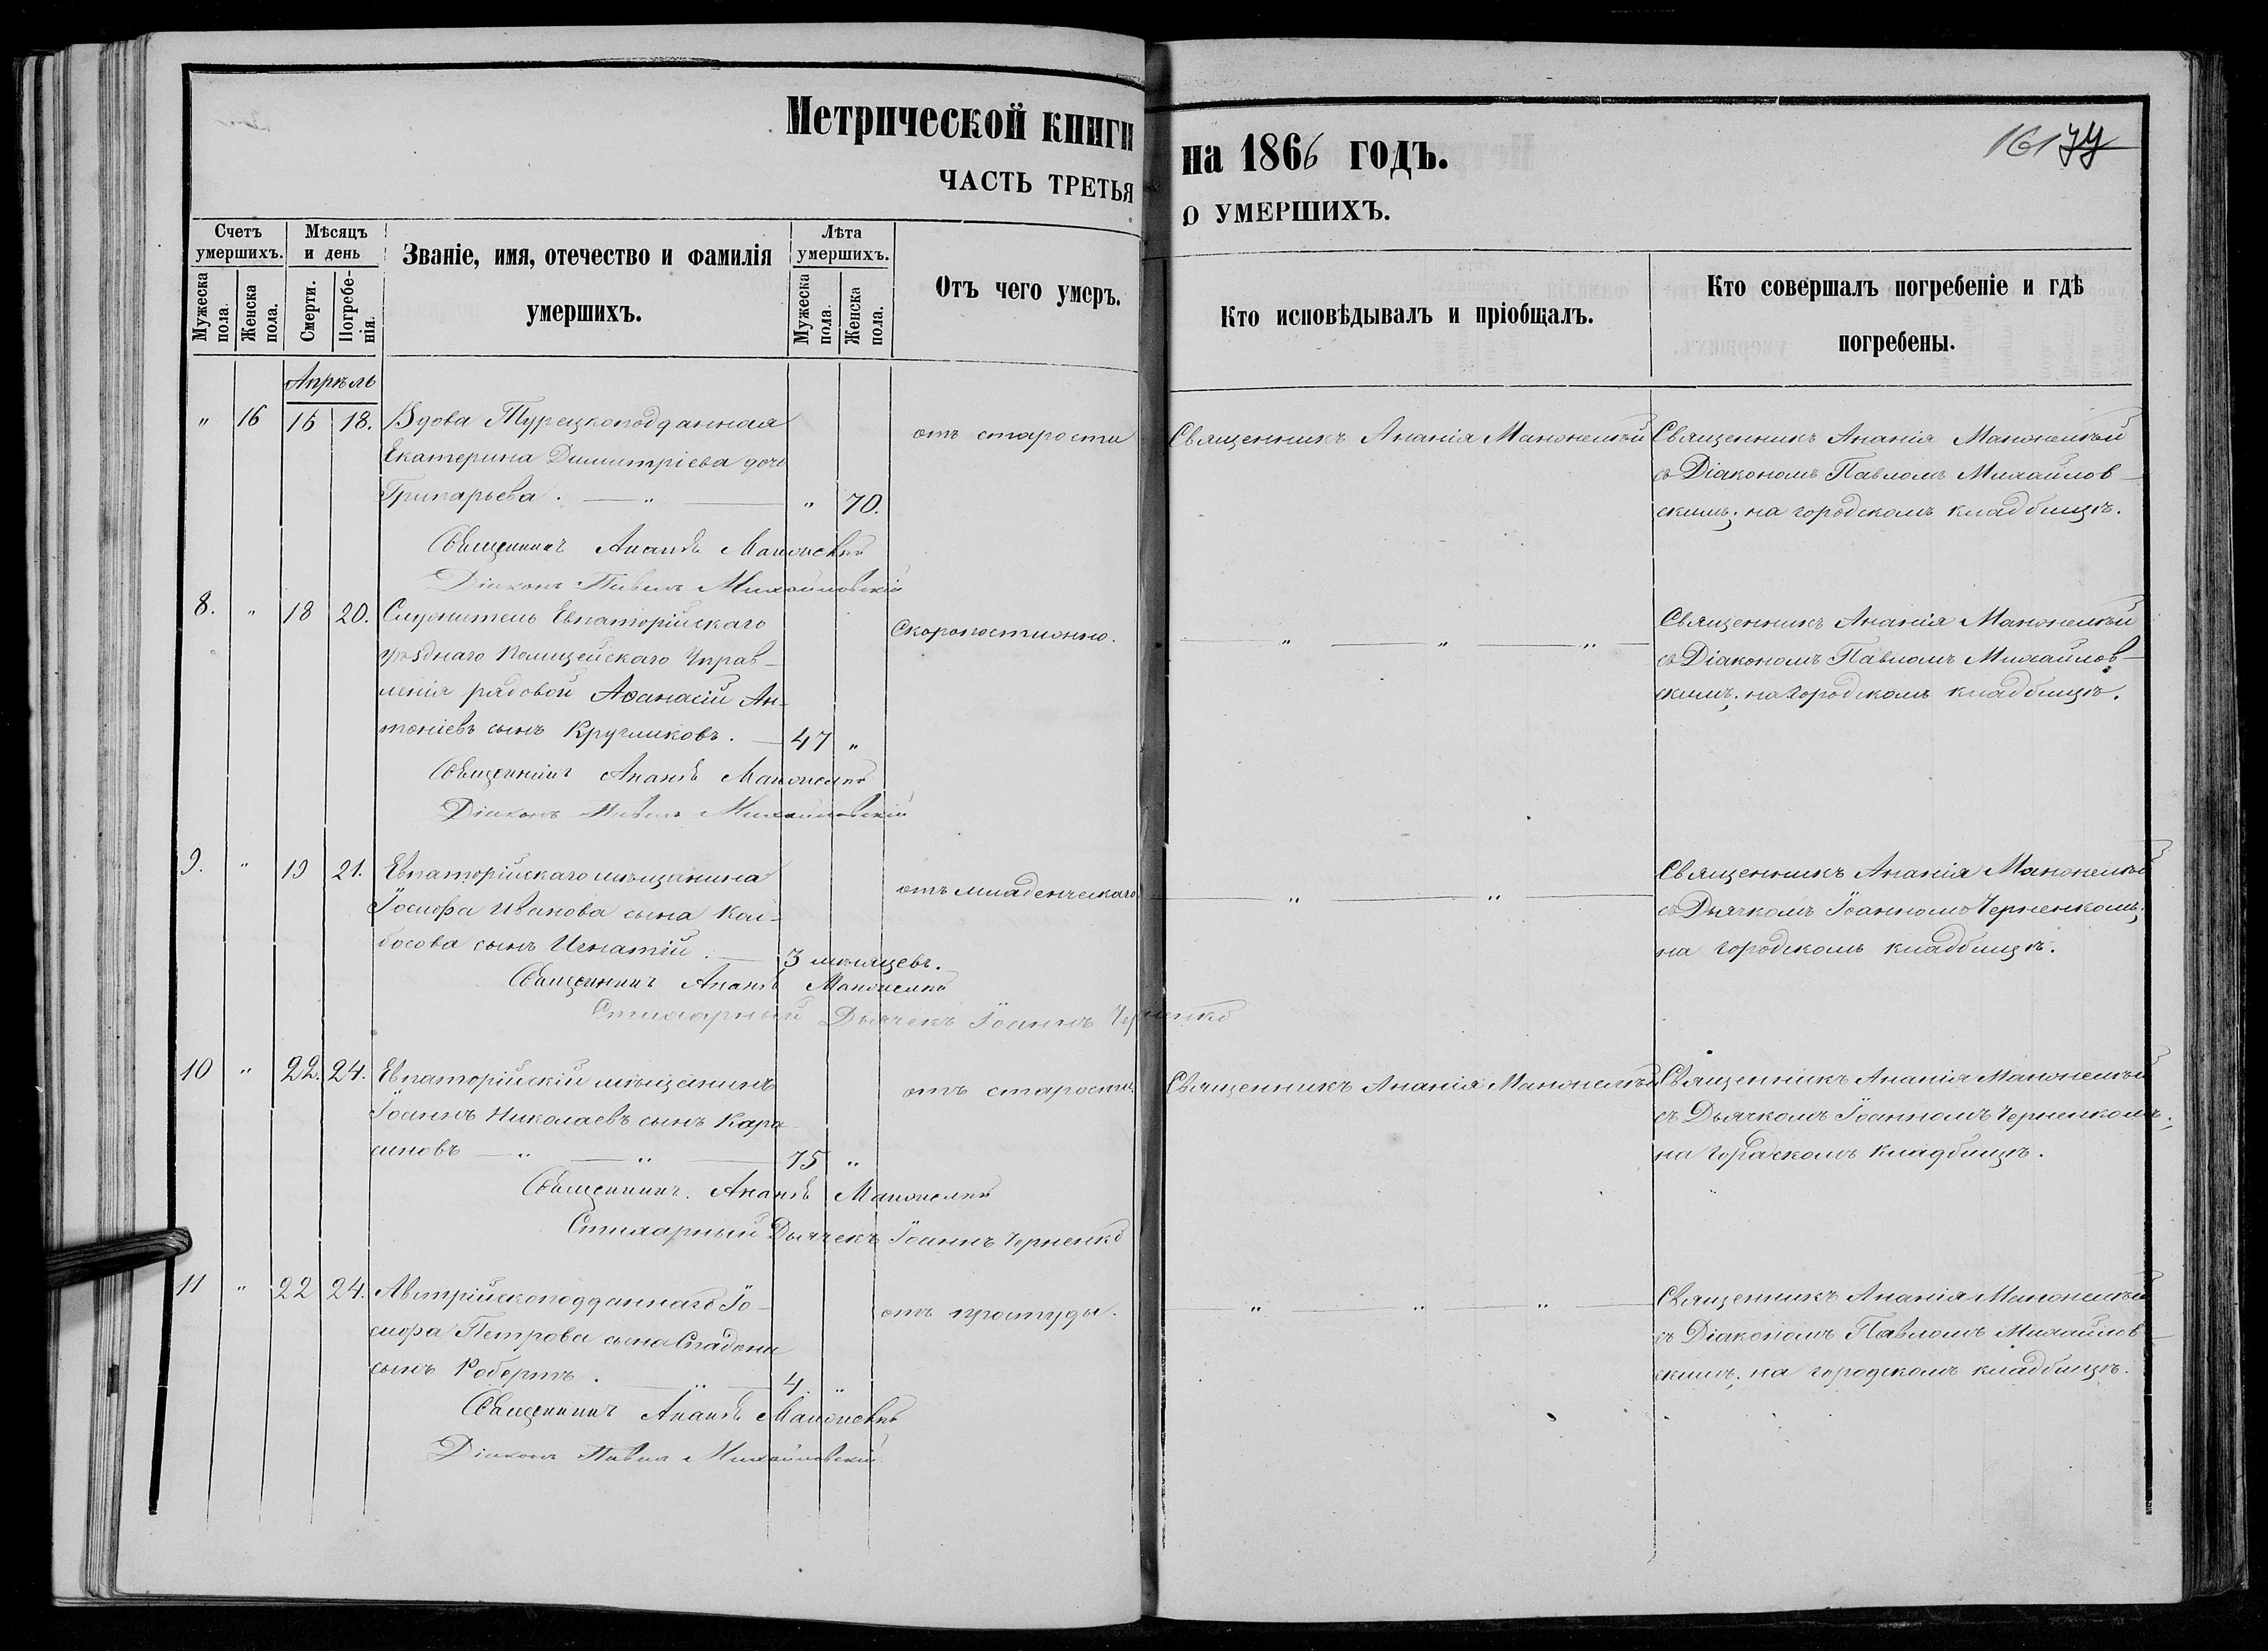 Метрической книги на 1866 годъ.
161 77
ЧАСТЬ ТРЕТЬЯ О УМЕРШИХЪ.
Счетъ умершихъ.
Мужеска пола.
Женска пола.
Мѣсяцъ и день
Смерти.
Погребенія.
Званіе, имя, отечество и фамилія
умершихъ.
Лѣта умершихъ.
Мужеска пола.
Женска пола.
Отъ чего умеръ.
Кто исповѣдывалъ и пріобщалъ.
Кто совершалъ погребеніе и гдѣ
погребены.
Апрѣль
„ 16 16 18. Вдова Турецкоподданная
Екатерина Димитріева дочь
Грипарьева. „ „ 70.
отъ старости
Священникъ Ананія Манонскій
Священникъ Ананія Манонскій
съ Діакономъ Павломъ Михайлов-
скимъ; на городскомъ кладбищѣ.
Священникъ Ананія
Діаконъ Павелъ Михайловскій
8. „ 18 20. Служитель Евпаторійскаго
уѣзднаго Полицейскаго Управ-
ленія рядовой Аѳанасій Ан-
тоніевъ сынъ Кругликовъ. 47 „
Скоропостижно.
„ „ „
Священникъ Ананія Манонскій
съ Діакономъ Павломъ Михайлов-
скимъ; на городскомъ кладбищѣ.
Священникъ Ананія
Діаконъ Павелъ Михайловскій
9. „ 19 21. Евпаторійскаго мѣщанина
Іосифа Иванова сына Кол-
босова сынъ Игнатій. 3 мѣсяцевъ.
отъ младенческаго
„ „
Священникъ Ананія Манонскій
съ Дьячкомъ Іоанномъ Черненкомъ;
на городскомъ кладбищѣ.
Священникъ Ананія
Стихарный Дьячекъ Іоаннъ Черненко
10 „ 22. 24. Евпаторійскій мѣщанинъ
Іоаннъ Николаевъ сынъ Кара-
симовъ „ „ 75 „
отъ старости
Священникъ Ананія Манонскій
Священникъ Ананія Манонскій
съ Дьячкомъ Іоанномъ Черненкомъ;
на городскомъ кладбищѣ.
Священникъ. Ананія
Стихарный Дьячекъ Іоаннъ Черненко
11 „ 22 24. Австрійскоподданнаго Іо-
сифа Петрова сына Спадони
сынъ Робертъ. „ 4. „
отъ простуды.
„ „ „
Священникъ Ананія Манонскій
съ Діакономъ Павломъ Михайлов-
скимъ; на городскомъ кладбищѣ.
Священникъ Ананія
Діаконъ Павелъ Михайловскій